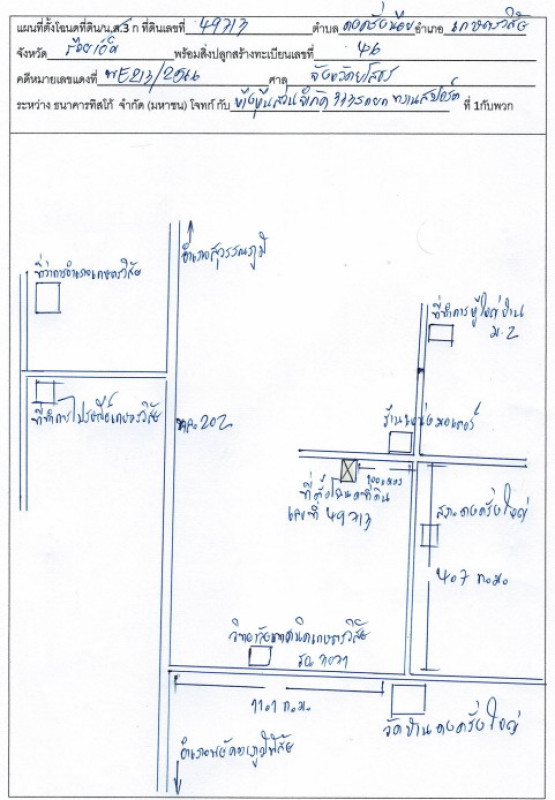 แผนที่ตั้งโฉนดที่ดิน/น.ส.3 ก ที่ดินเลขที่ 49713 ตำบล ดงครั่งน้อย อำเภอ เกษตรวิสัย
จังหวัด ร้อยเอ็ด พร้อมสิ่งปลูกสร้างทะเบียนเลขที่ 46
คดีหมายเลขแดงที่ ผบE213/2566 ศาล จังหวัดยโสธร
ระหว่าง ธนาคารทิสโก้ จำกัด (มหาชน) โจทก์ กับ ห้างหุ้นส่วนจำกัด ที่ 1กับพวก
อำเภอสุวรรณภูมิ
ที่ว่าการอำเภอเกษตรวิสัย
ที่ทำการผู้ใหญ่บ้าน
ม.2
ที่ทำการไปรษณีย์เกษตรวิสัย
202
ร้าน มอเตอร์
100เมตร
ที่ตั้งโฉนดที่ดิน
เลขที่ 49713
ดงครั่งใหญ่
4.7 ก.ม.
วิทยาลัยเทคนิคเกษตรวิสัย
11.1 ก.ม.
วัดบ้านดงครั่งใหญ่
อำเภอพยัคฆภูมิพิสัย